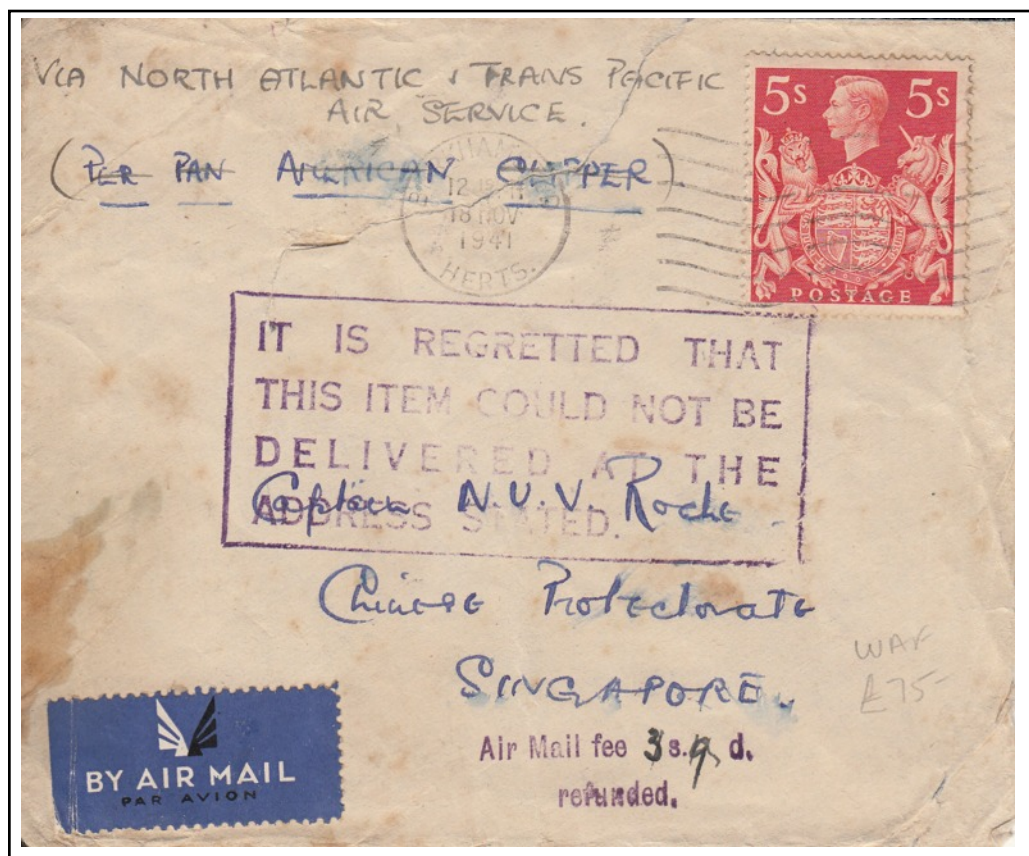 VIA NORTH ATLANTIC & TRANS PACIFIC
AIR SERVICE.
(PER PAN AMERICAN CLIPPER)
5s 5s
POSTAGE
12
18 NOV
1941
HERTS.
IT IS REGRETTED THAT
THIS ITEM COULD NOT BE
DELIVERED AT THE
ADDRESS STATED.
Captain N.U.V. Roche
Chinese Protectorate
SINGAPORE.
WAF
£75-
Air Mail fee 3 s. 9 d.
refunded.
BY AIR MAIL
PAR AVION